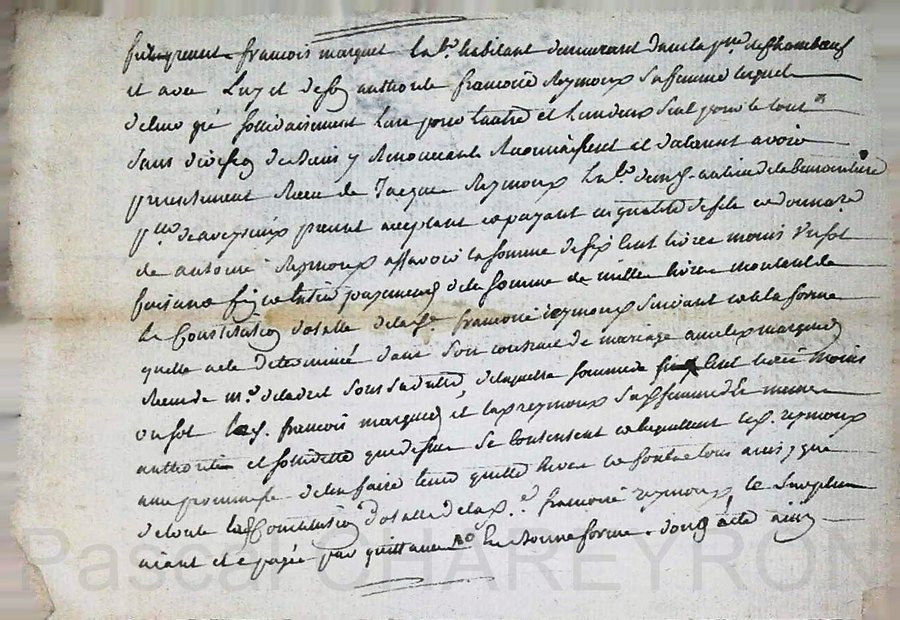 furent present francois marquet lab.r habitant demeurant dans la p.sse de Chambœuf
et avec luy et de son authorité francoise Reymoux sa femme lequels
de leur gré sollidairement l'un pour l'autre et l'un deux seul pour le tout
sans division de biens y renoncant reconnaissent et declarent avoir
presentement receu de Jacque Reymoux lab.r
p.sse de aveyzieux present acceptant et payant en qualité de fils et donnataire
de antoine Reymoux assavoir la somme de six cent livres moins un sol
faisant fin et entier payement de la somme de mille livres montant de
la Constitution dotalle de la d. francoise reymoux suivant et a la forme
quelle a ete determinée dans son contract de mariage avec led. marquet
receu de m.e de laquelle somme de six cent livres moins
un sol les d. francois marquet et lad. reymoux sa d. femme de la meme
authorité et sollidité que dessus se contentent et en quittent led. reymoux
avec promesse de len faire tenir quitte envers et contre tous ainsy que
de toute lad. Constitution dotalle de lad. francoise reymoux, le surplus
aiant été payé par quittance en bonne forme. dont acte ainsy
Pascal CHAREYRON